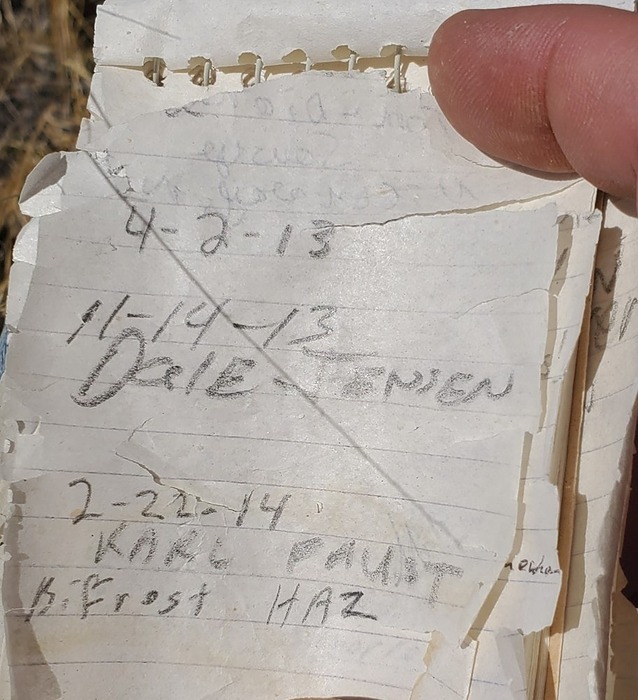 4-2-13
11-14-13
DalE JENSEN
2-22-14
KARL FAUST
Bifrost HAZ